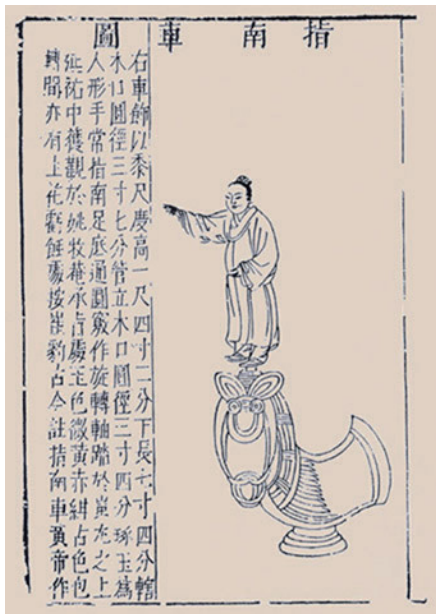 指南車圖
右車飾以黍尺慶高一尺四寸二分下長七寸四分轄
木口圓徑三寸七分管立木口圓徑三寸四分琢玉爲
人形手常指南足底通圓竅作旋轉軸踏於蚩尤之上
延祐中獲觀於姚牧菴承旨處玉色微黃赤紺古色包
轉間亦有土花虧蝕處按崔豹古今註指南車黃帝作